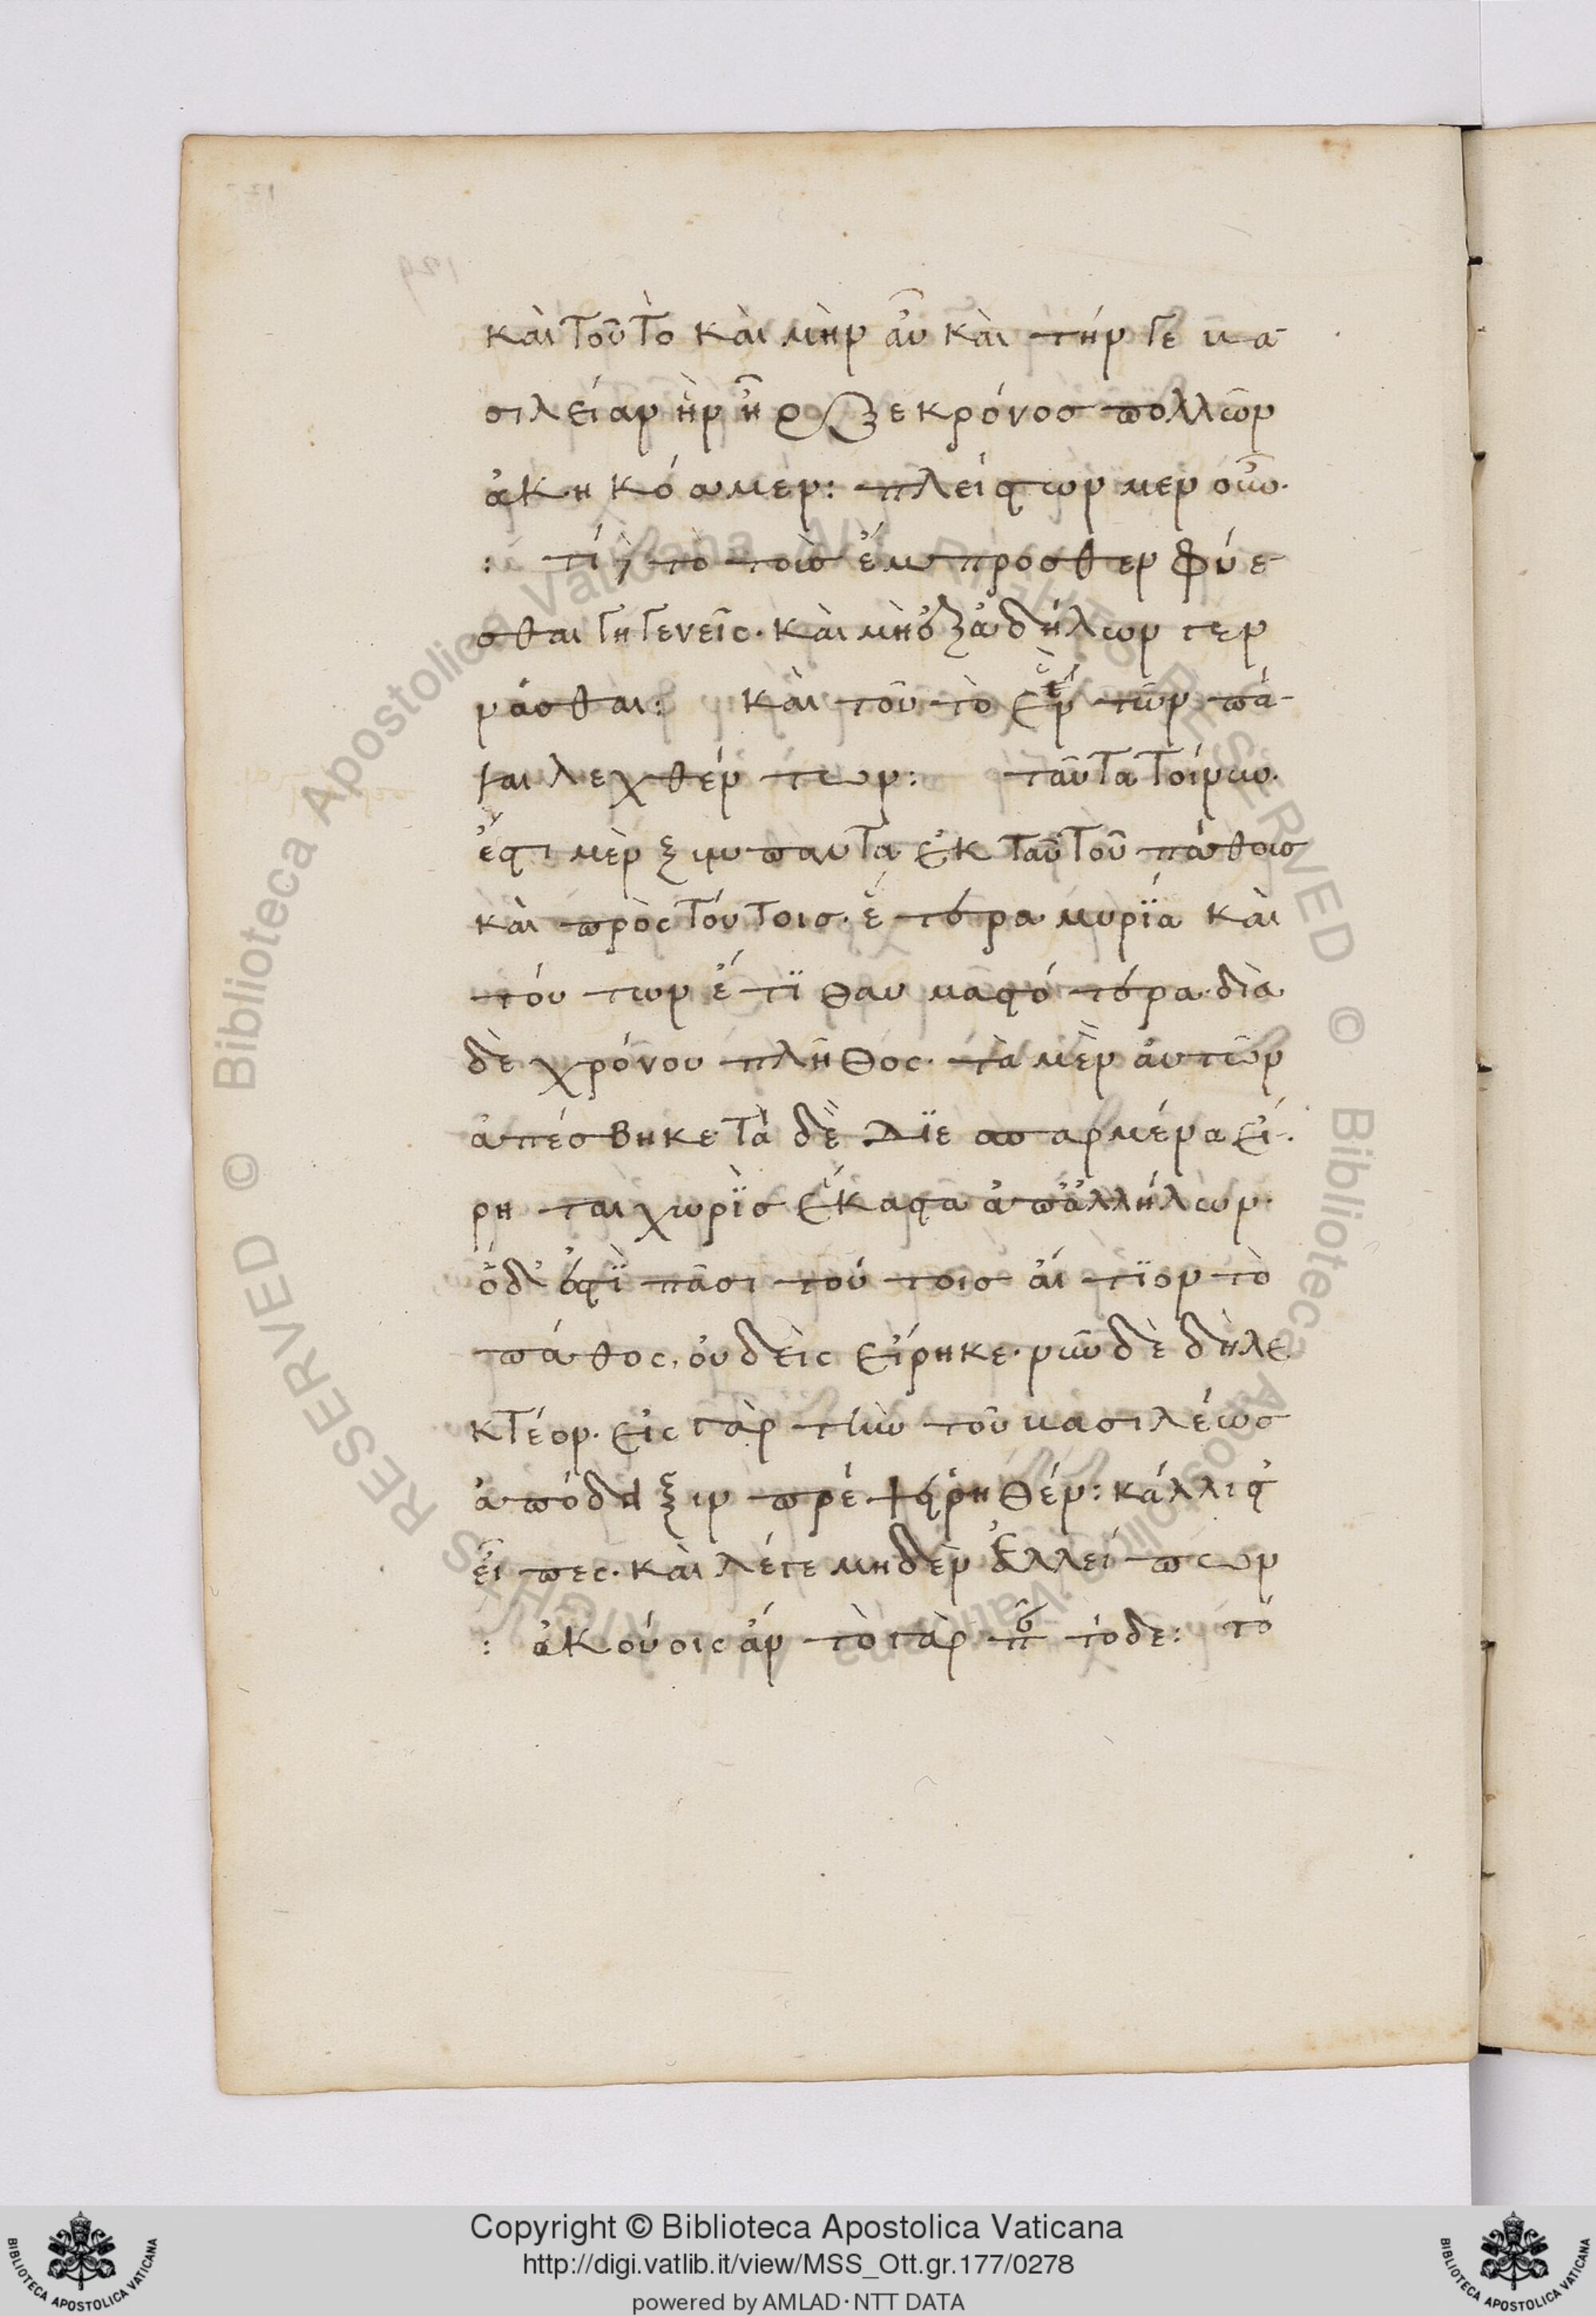 καὶ τοῦτο καὶ μὴν αὖ καὶ τήν γε βα-
σιλείαν ἣν ἦρξε κρόνος πολλῶν
ἀκηκόαμεν: πλείστων μὲν οὖν·
: τί δὲ τὸ τοὺς ἔμπροσθεν φύε-
σθαι γηγενεῖς· καὶ μὴ ἐξ ἀλλήλων γεν
νᾶσθαι: καὶ τοῦτο ἓν τῶν πά-
λαι λεχθέντων: ταῦτα τοίνυν·
ἔστι μὲν ξύμπαντα ἐκ ταὐτοῦ πάθους
καὶ πρὸς τούτοις· ἕτερα μυρία καὶ
τούτων ἔτι θαυμαστότερα· διὰ
δὲ χρόνου πλῆθος· τὰ μὲν αὐτῶν
ἀπέσβηκε τὰ δὲ διεσπαρμένα εἴ-
ρηται χωρὶς ἕκαστα ἀπ' ἀλλήλων·
ὃ δ' ἐστὶ πᾶσι τούτοις αἴτιον τὸ
πάθος, οὐδεὶς εἴρηκε· νῦν δὲ δὴ λε
κτέον· εἰς γὰρ τὴν τοῦ βασιλέως
ἀπόδειξιν πρέψει ῥηθέν: κάλλιστ'
εἶπες· καὶ λέγε μηδὲν ἐλλείπων
: ἀκούοις ἄν τὸ γὰρ πᾶν τόδε: τὸ
Copyright © Biblioteca Apostolica Vaticana
http://digi.vatlib.it/view/MSS_Ott.gr.177/0278
powered by AMLAD·NTT DATA